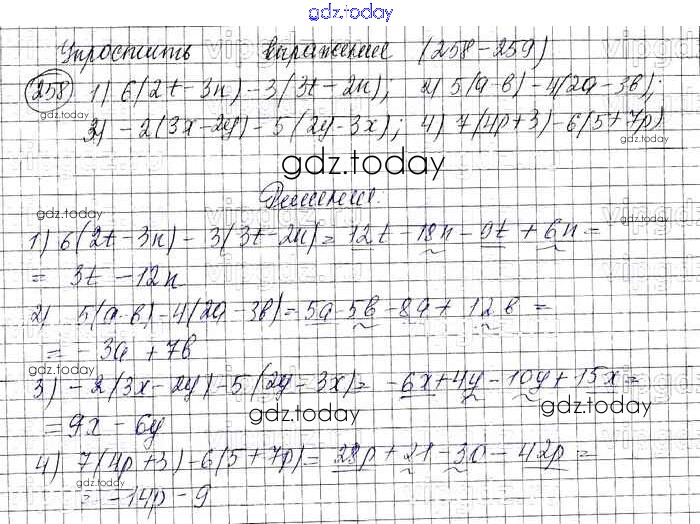 gdz.today
Упростить выражение (258-259)
258 1) 6(2t-3n)-3(3t-2n); 2) 5(a-b)-4(2a-3b);
gdz.today
3) -2(3x-2y)-5(2y-3x); 4) 7(4p+3)-6(5+7p)
gdz.today
gdz.today
Решение.
gdz.today
gdz.today
1) 6(2t-3n)-3(3t-2n)=12t-18n-9t+6n=
= 3t-12n
2) 5(a-b)-4(2a-3b)=5a-5b-8a+12b=
= -3a+7b
gdz.today
gdz.today
3) -2(3x-2y)-5(2y-3x)= -6x+4y-10y+15x=
=9x-6y
gdz.today
gdz.today
4) 7(4p+3)-6(5+7p)=28p+21-30-42p=
= -14p-9